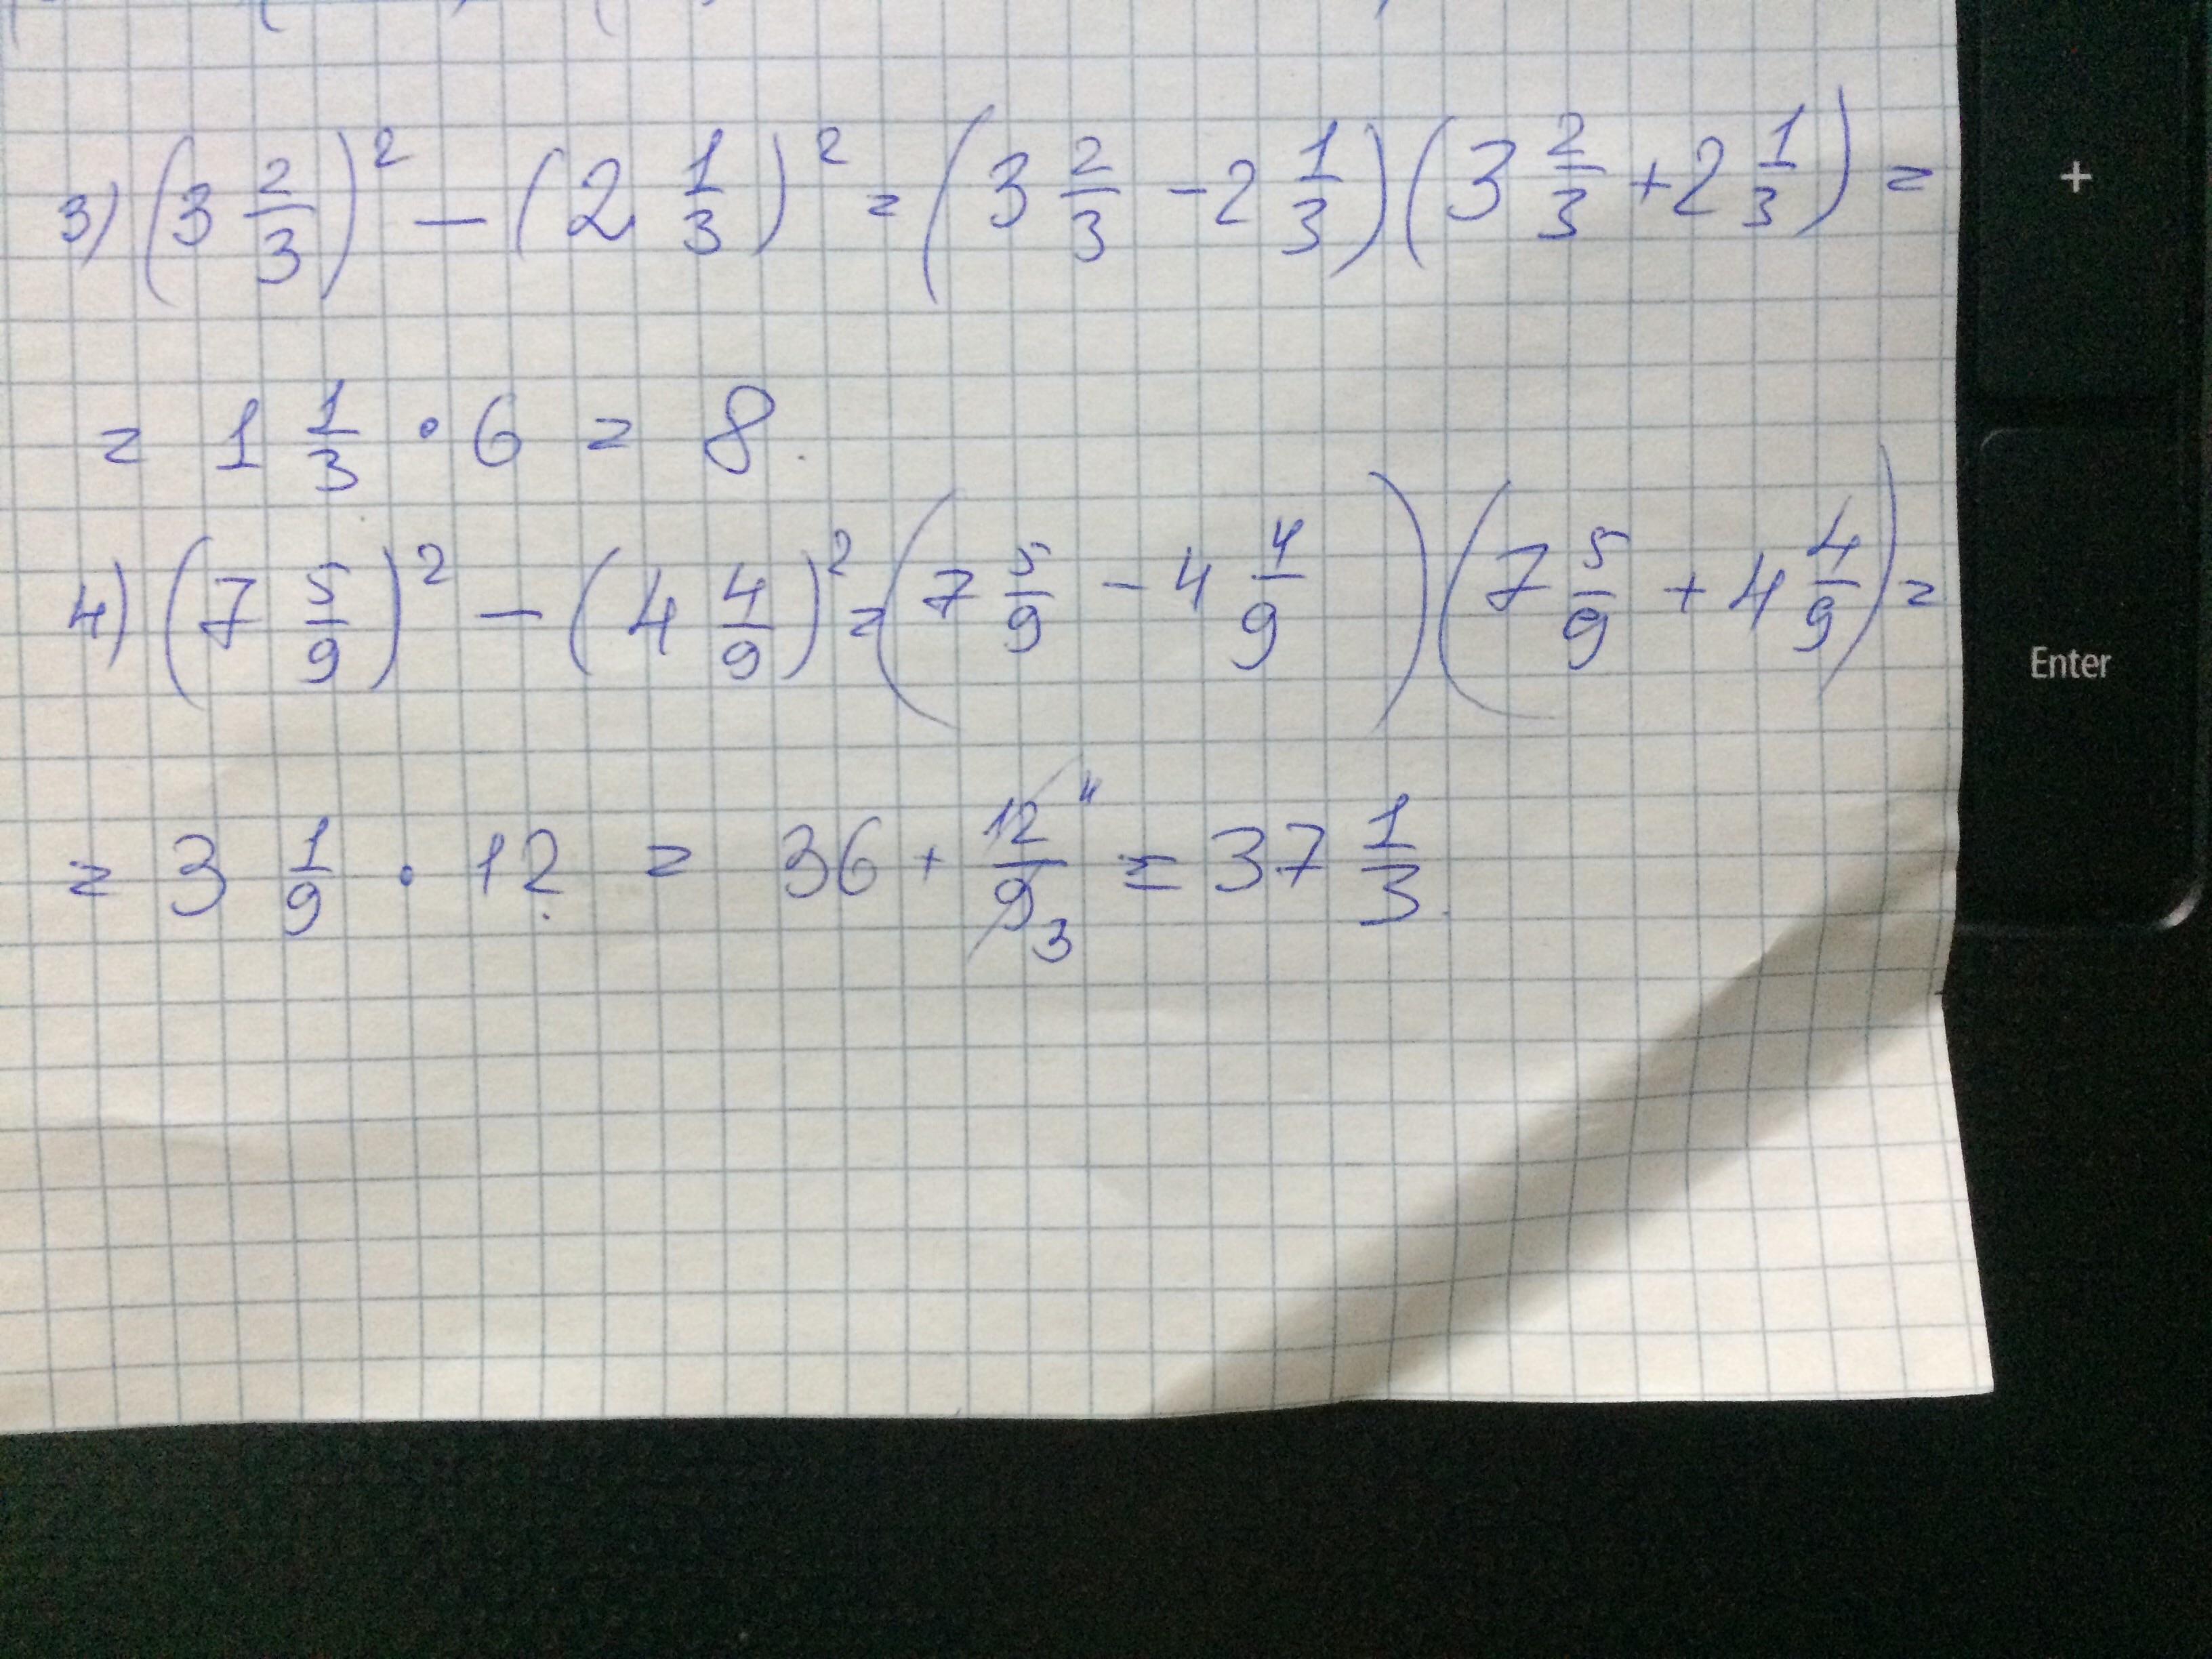 3) (3 2/3)² − (2 1/3)² = (3 2/3 − 2 1/3)(3 2/3 + 2 1/3) =
= 1 1/3 · 6 = 8.
4) (7 5/9)² − (4 4/9)² = (7 5/9 − 4 4/9)(7 5/9 + 4 4/9) =
= 3 1/9 · 12 = 36 + 12 4/9 3 = 37 1/3.
+
Enter